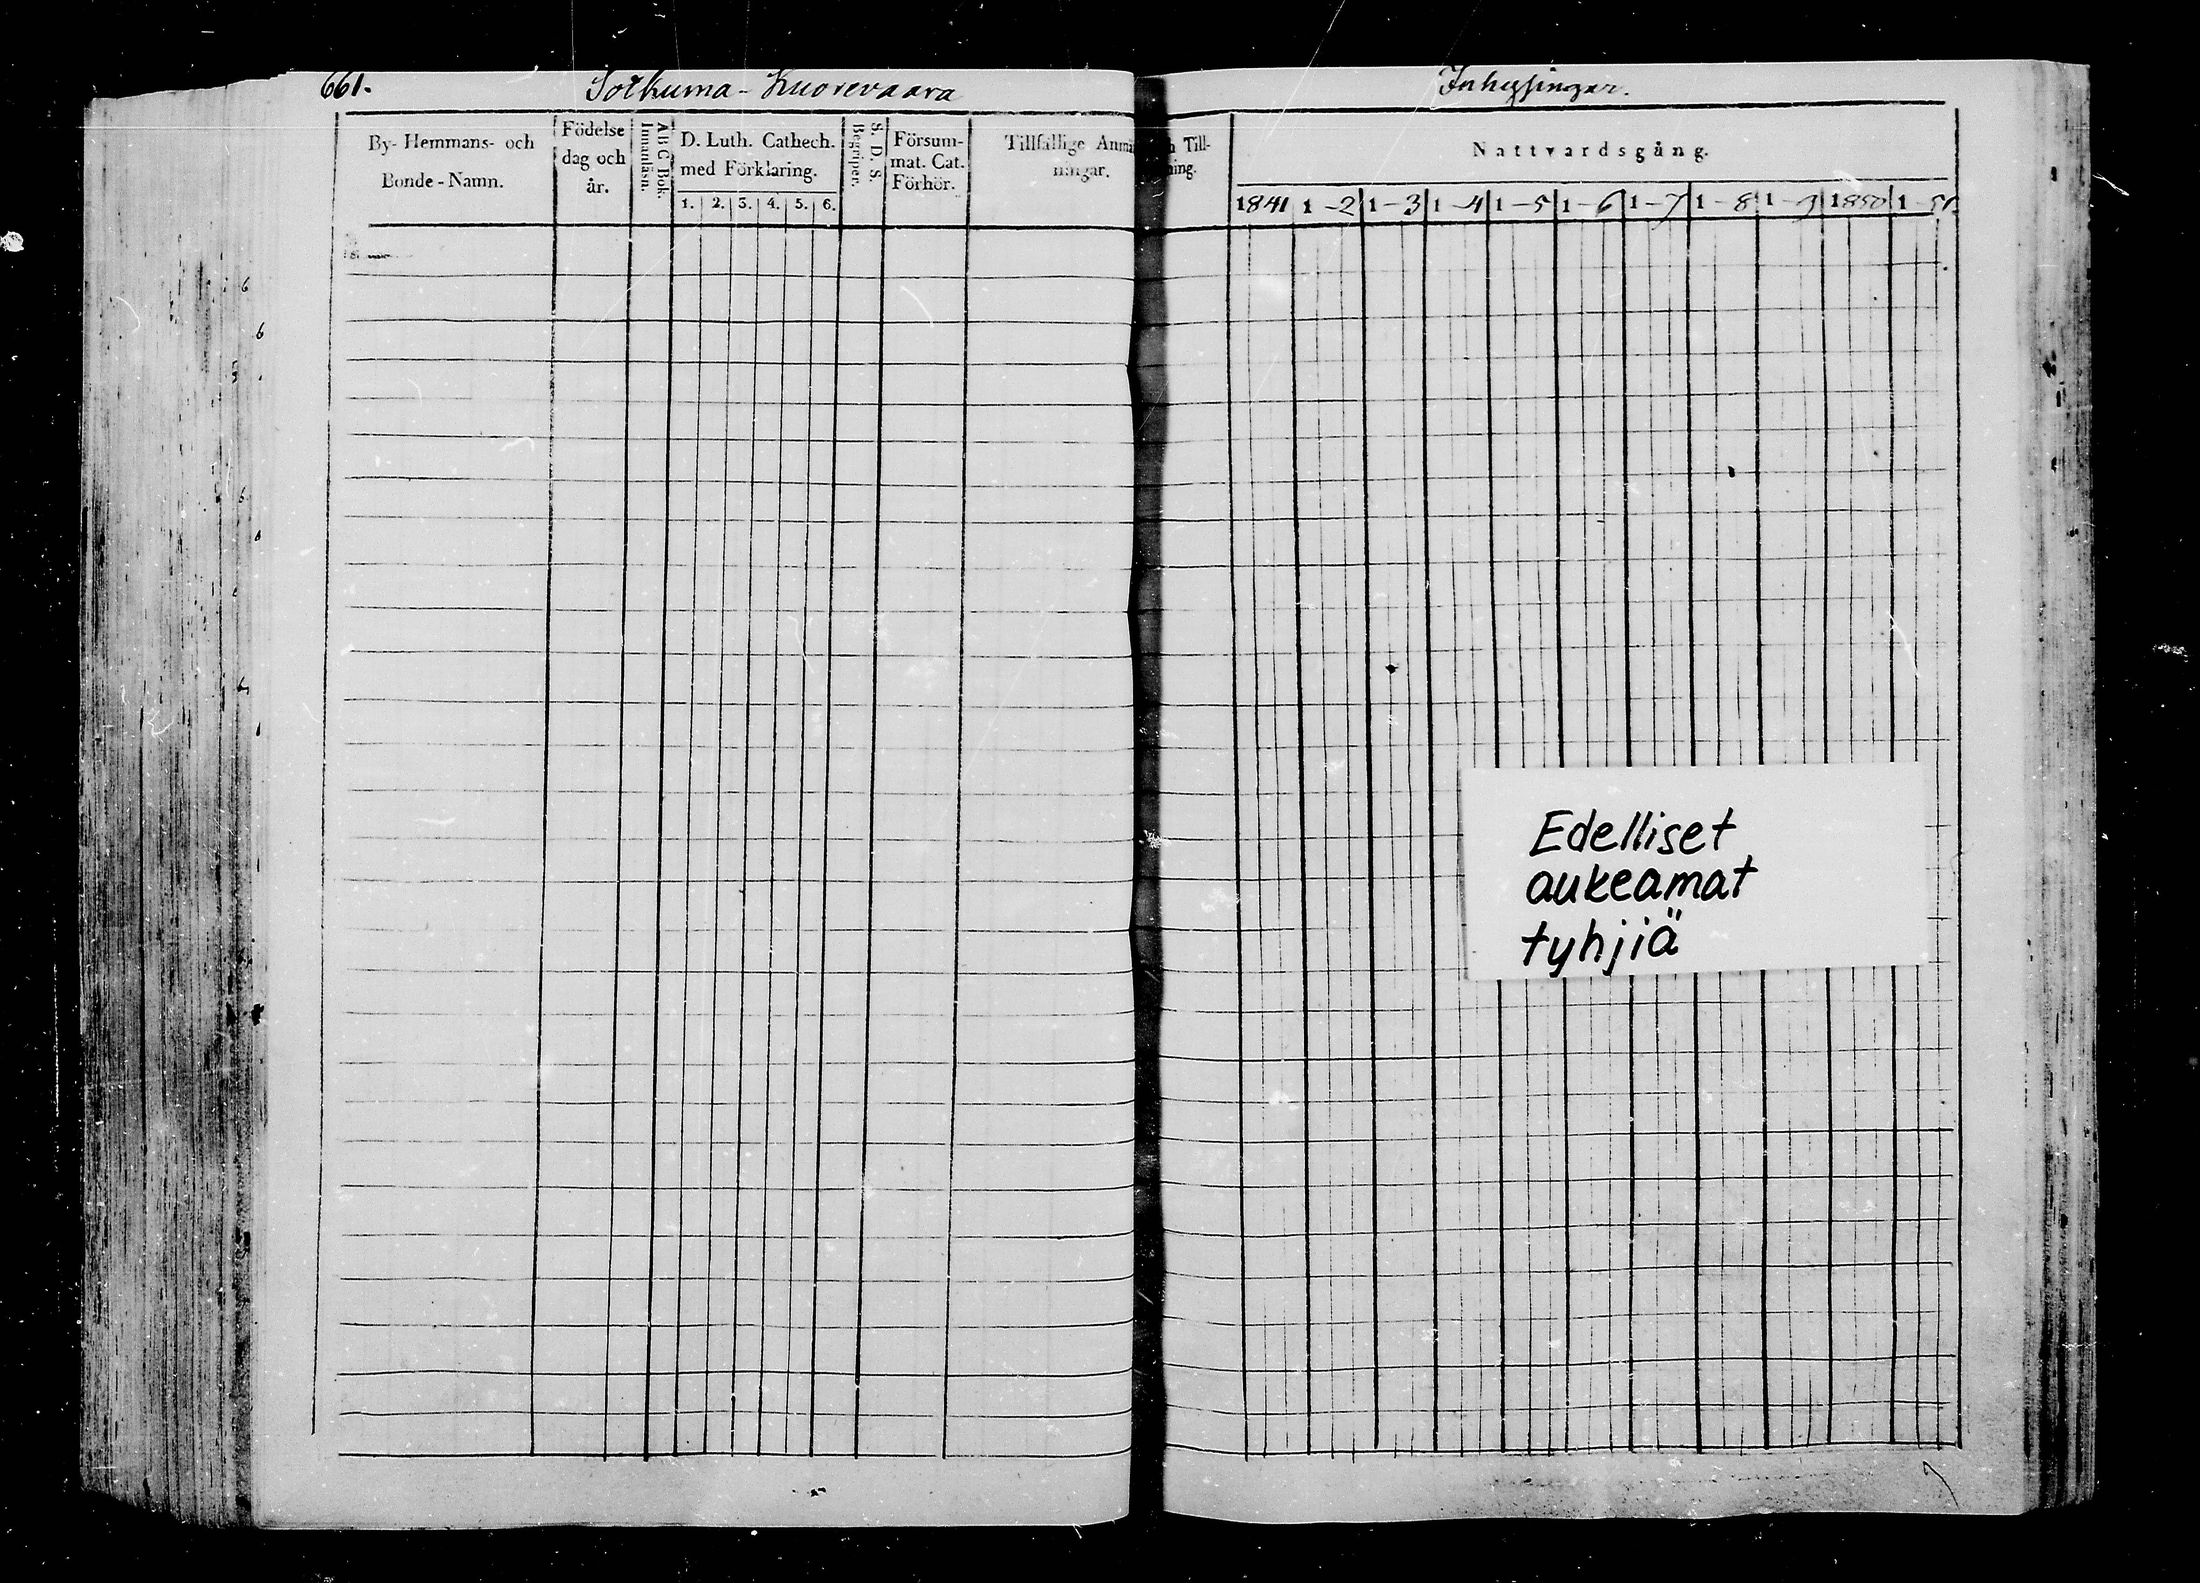 661. Sotkuma - Kuorevaara Inhysingar.
By- Hemmans- och
Bonde-Namn.
Födelse
dag och
år.
A B C Bok.
Innanläsn.
D. Luth. Cathech.
med Förklaring.
1. 2. 3. 4. 5. 6.
S. D. S.
Begriper.
Försum-
mat. Cat.
Förhör.
Tillfällige Anmä
ningar.
Till-
ning.
Nattvardsgång.
1841 1-2 1-3 1-4 1-5 1-6 1-7 1-8 1-9 1850 1-51.
Edelliset
aukeamat
tyhjiä